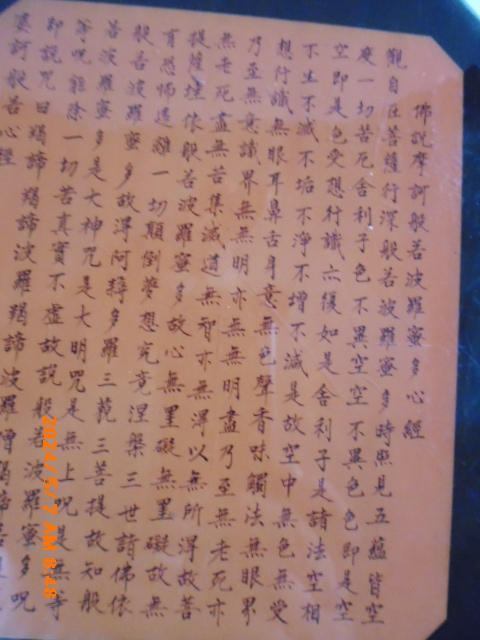 佛說摩訶般若波羅蜜多心經
觀自在菩薩行深般若波羅蜜多時照見五蘊皆空
度一切苦厄舍利子色不異空空不異色色即是空
空即是色受想行識亦復如是舍利子是諸法空相
不生不滅不垢不淨不增不減是故空中無色無受
想行識無眼耳鼻舌身意無色聲香味觸法無眼界
乃至無意識界無無明亦無無明盡乃至無老死亦
無老死盡無苦集滅道無智亦無得以無所得故菩
提薩埵依般若波羅蜜多故心無罣礙無罣礙故無
有恐怖遠離一切顛倒夢想究竟涅槃三世諸佛依
般若波羅蜜多故得阿耨多羅三藐三菩提故知般
若波羅蜜多是大神咒是大明咒是無上咒是無等
等咒能除一切苦真實不虛故說般若波羅蜜多咒
即說咒曰揭諦揭諦波羅揭諦波羅僧揭諦菩
婆訶般若心經
2024/5/7 AM 8:48